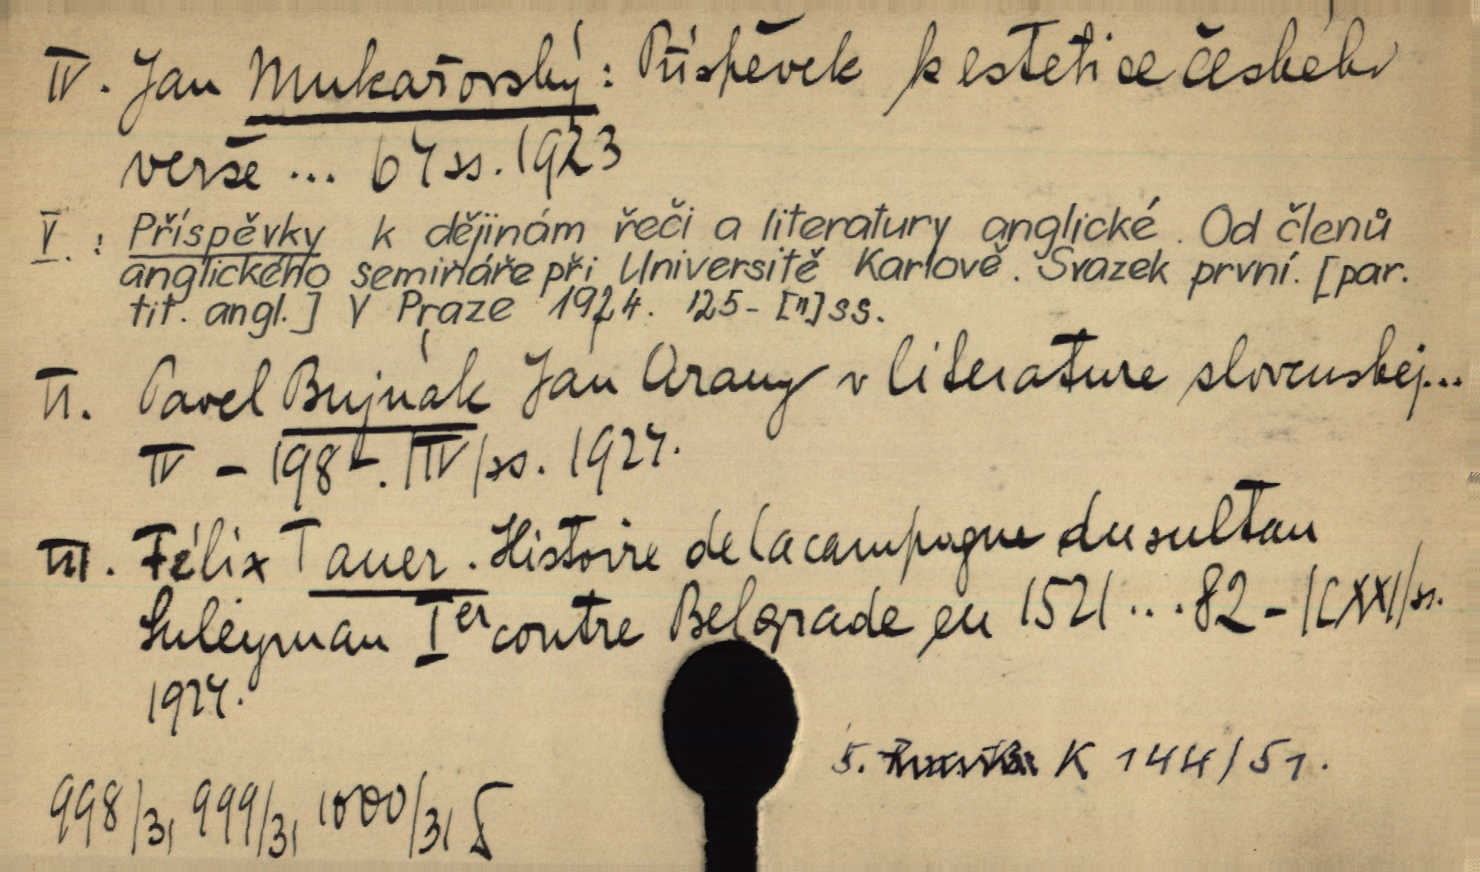 IV. Jan Mukařovský: Příspěvek k estetice českého
verše ... 67 ss. 1923
V. : Příspěvky k dějinám řeči a literatury anglické. Od členů
anglického semináře při Universitě Karlově. Svazek první. [par.
tit. angl.] V Praze 1924. 125-[II] ss.
II. Pavel Bujnák Ján Arany v literature slovenskej...
IV - 198 - . |IV| ss. 1924.
III. Félix Tauer. Histoire de la campagne du sultan
Suleyman Ier contre Belgrade en 1521 ... 82 - |CXX| ss.
1924.
5. K 144/51.
998/31 999/31 1000/31